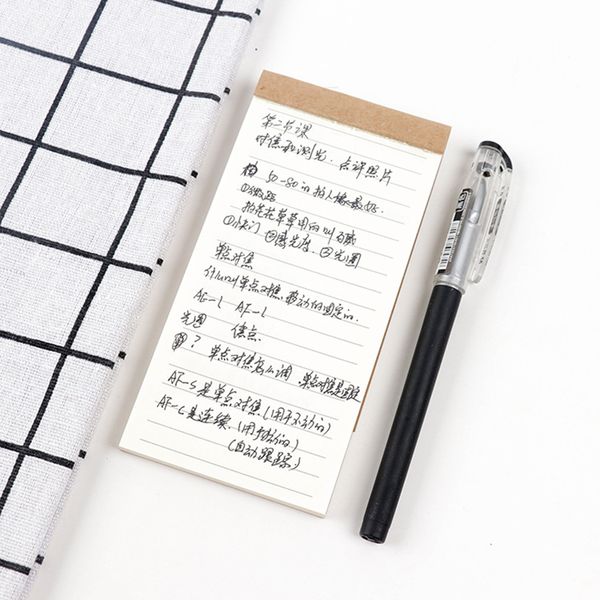 第二节课
对焦和测光. 点评照片
50-80的拍人像最好.
①微距
拍花花草草用的叫微
①快门 ②感光度. ③光圈
单点对焦
什么时单点对焦, 移动的固定的.
AE-L AF-L
光圈 焦点.
? 单点对焦怎么调, 单点对焦是固定
AF-S是单点对焦(用于不动的)
AF-C是连续.(用于动的)
(自动跟踪)